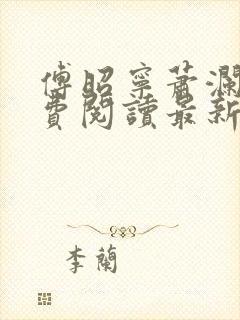 傅昭寧蕭瀾
費閱讀最新
李蘭